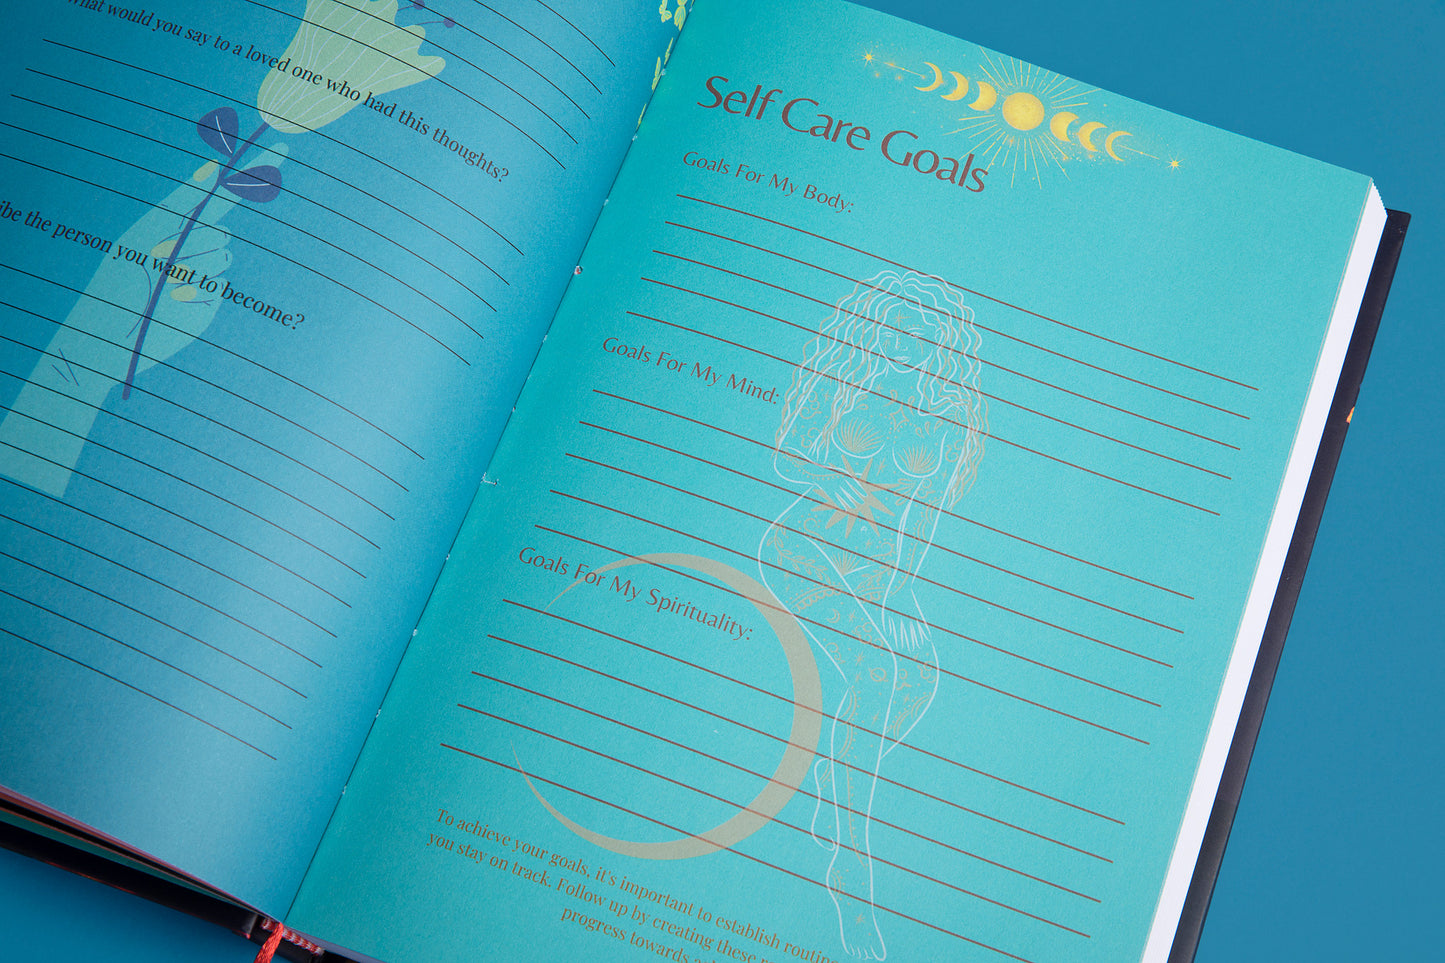 What would you say to a loved one who had this thoughts?
the person you want to become?
Self Care Goals
Goals For My Body:
Goals For My Mind:
Goals For My Spirituality:
To achieve your goals, it's important to establish
you stay on track. Follow up by creating these
progress towards